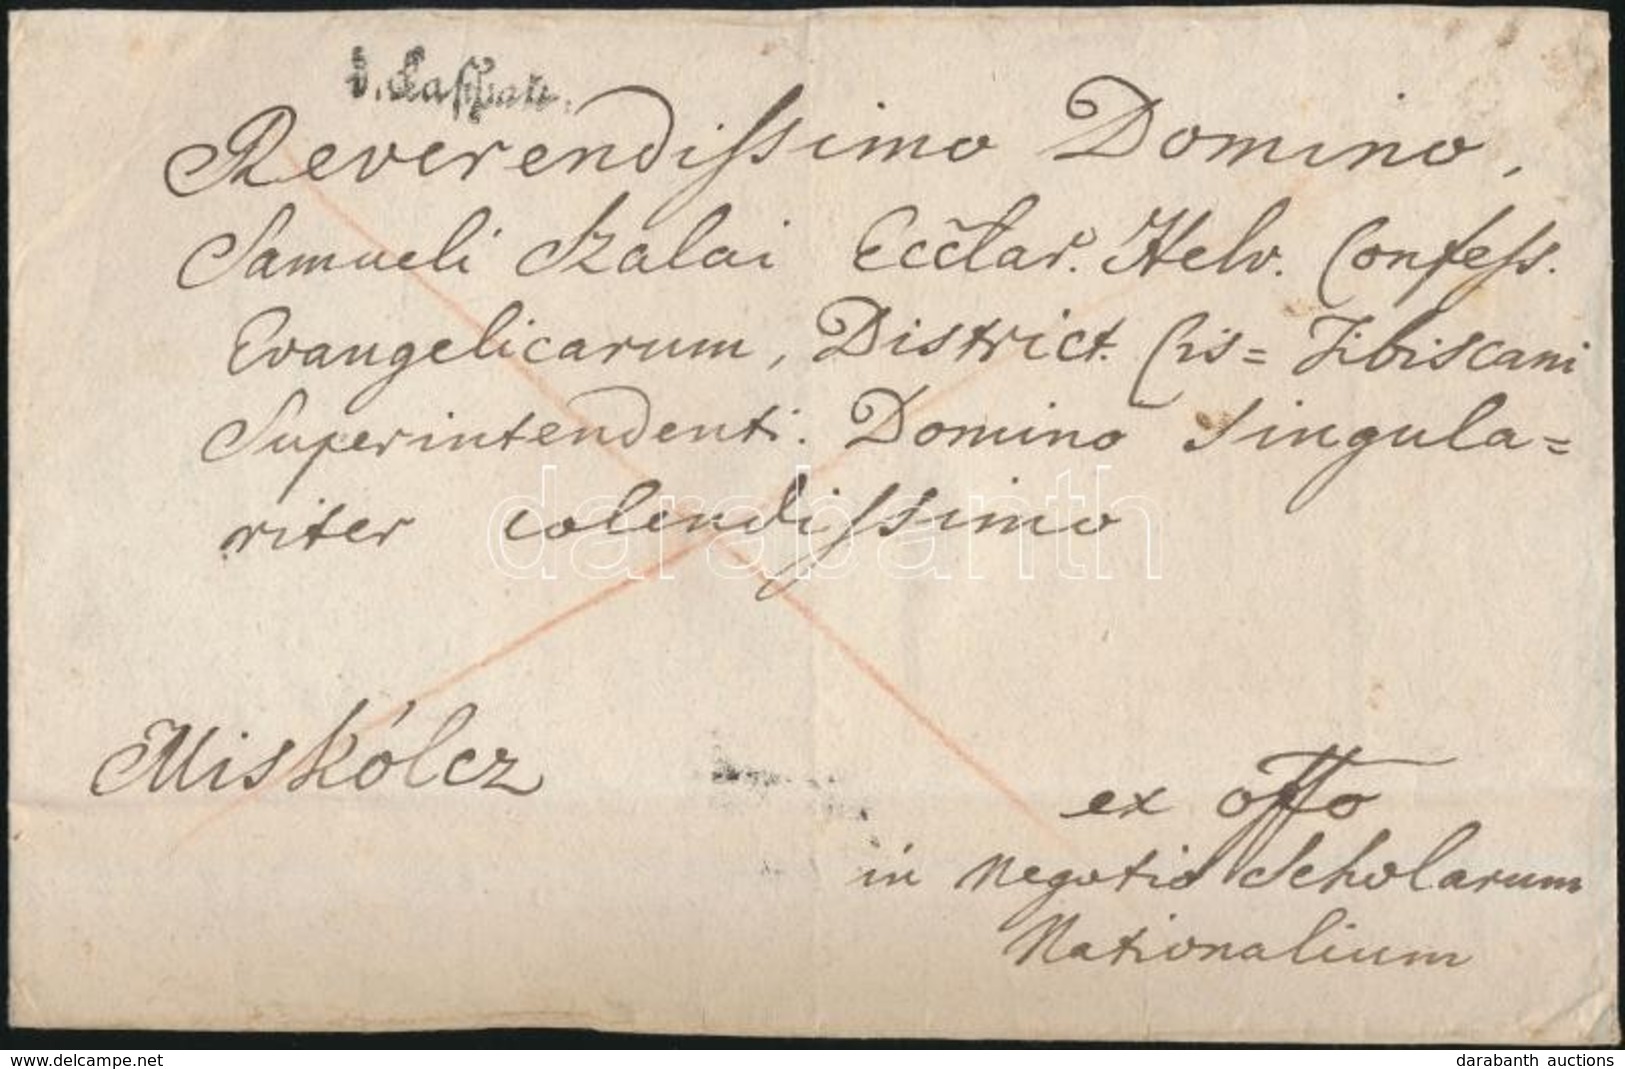 v. Kaschau.
Reverendissimo Domino,
Samueli Szalai Eccłar. Helv. Confess.
Evangelicarum, District. Cis= Tibiscani
Superintendenti. Domino Singula=
riter colendissimo
darabanth
Miskólcz
ex offo
in Negotio Scholarum
Nationalium
www.delcampe.net
darabanth auctions